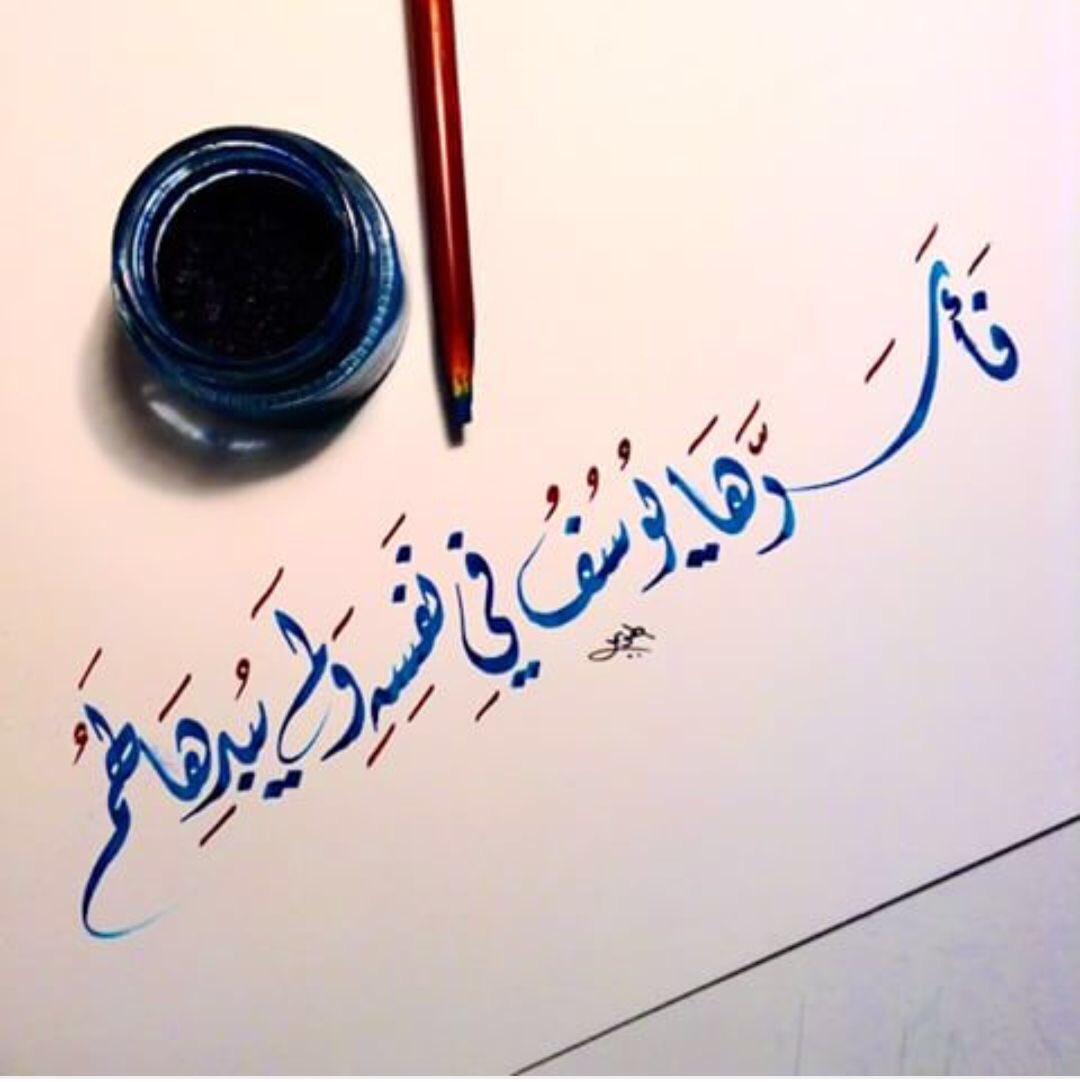 فَأَسَرَّهَا يُوسُفُ فِي نَفْسِهِ وَلَمْ يُبْدِهَا لَهُمْ